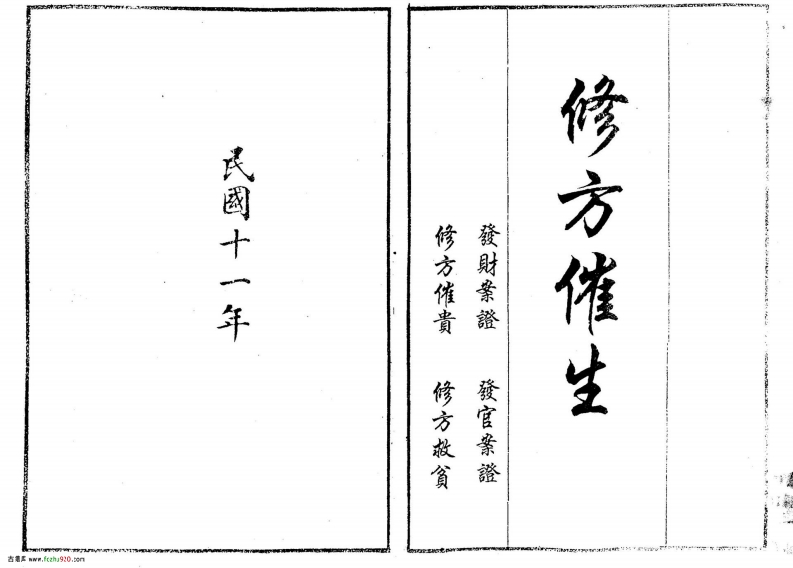 修方催生
發財案證 發官案證
修方催貴 修方救貧
民國十一年
古易库 www.fczhu920.com